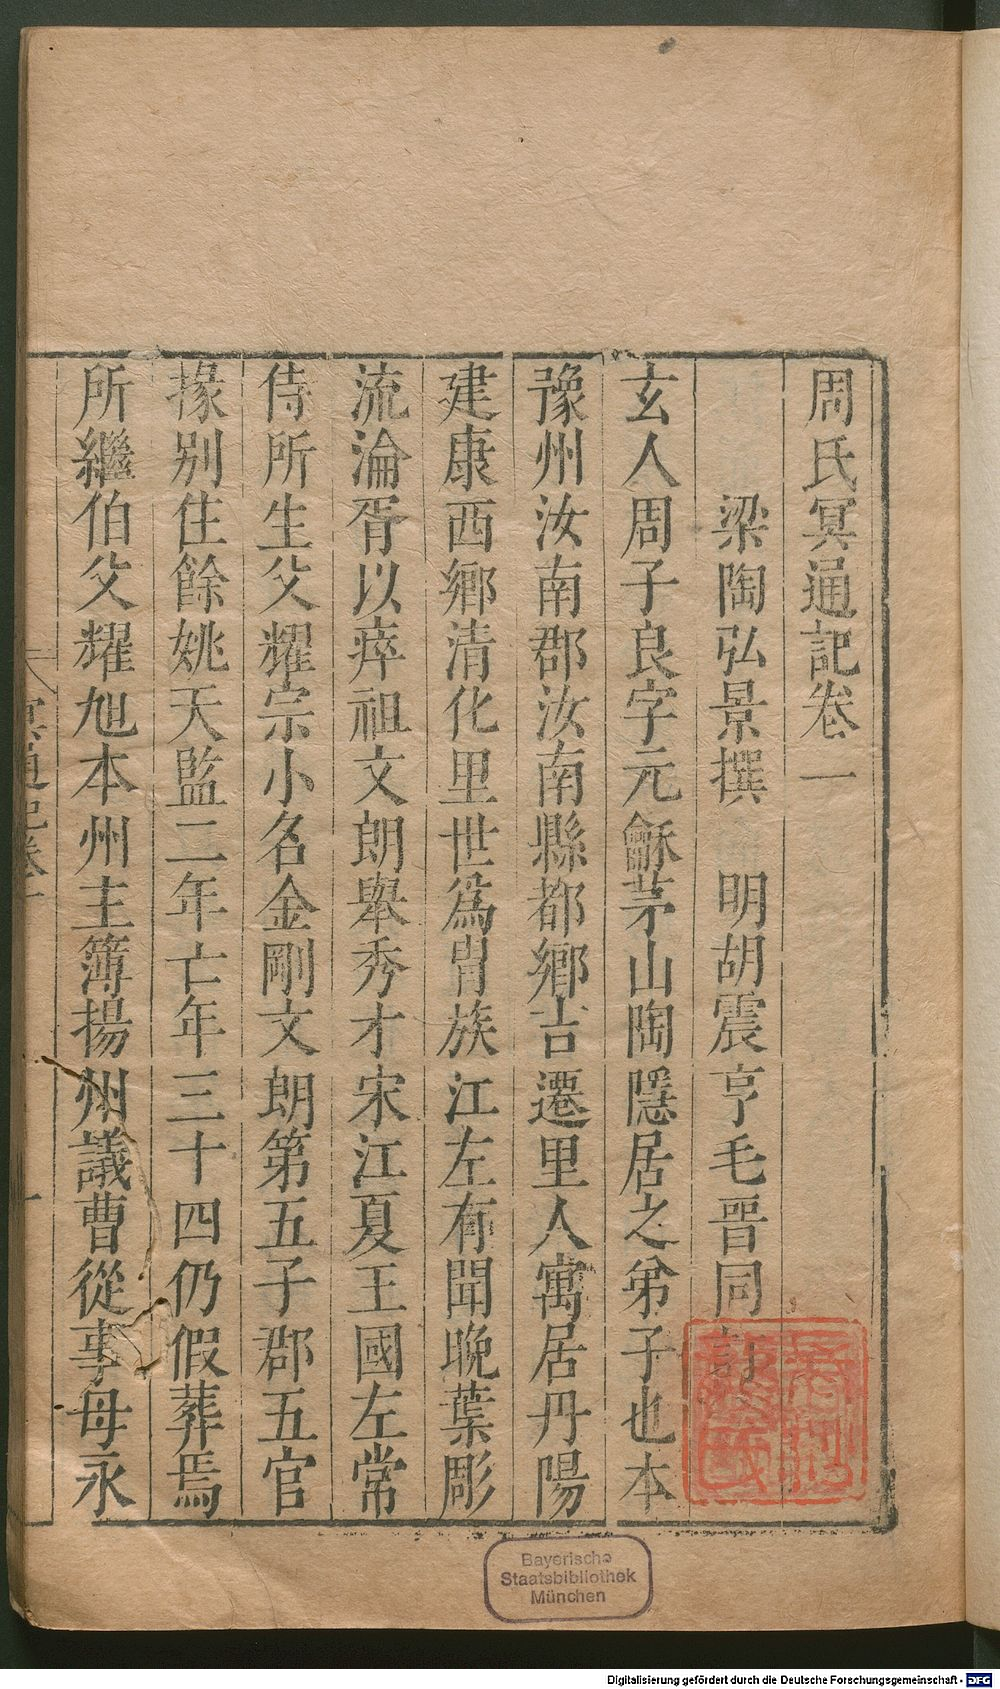 周氏冥通記卷一
梁陶弘景撰 明胡震亨毛晉同訂
玄人周子良字元龢茅山陶隱居之弟子也本
豫州汝南郡汝南縣都鄉吉遷里人寓居丹陽
建康西鄉清化里世爲冑族江左有聞晚葉彫
流淪胥以瘁祖文朗舉秀才宋江夏王國左常
侍所生父耀宗小名金剛文朗第五子郡五官
掾別住餘姚天監二年亡年三十四仍假葬焉
所繼伯父耀旭本州主簿揚州議曹從事母永
冥通記卷一
一
Bayerische
Staatsbibliothek
München
Digitalisierung gefördert durch die Deutsche Forschungsgemeinschaft - DFG